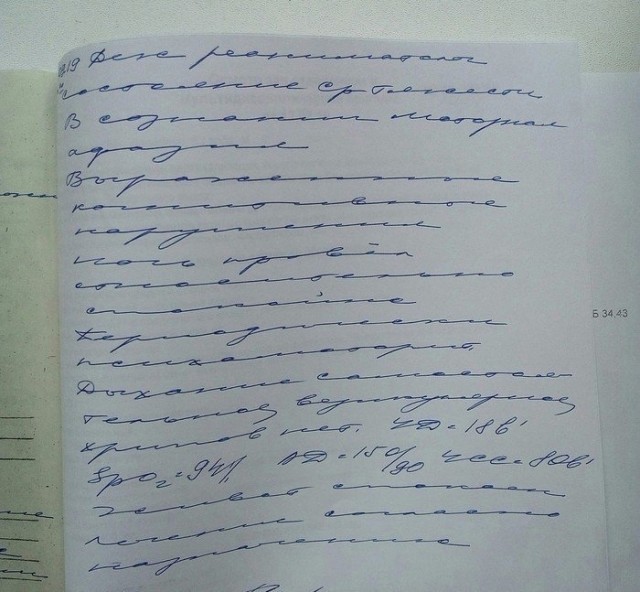 Деж реаниматолог
состояние ср тяжести
В сознании Моторная
афазия
Выраженные
когнитивные
нарушения
ночь провёл
относительно
спокойно
Периодически
психомоторн.
Дыхание самостоя
тельное, везикулярное,
хрипов нет. ЧД=18 в'
SpO2=94% АД=150/90 ЧСС=80 в'
Живот спокоен
лечение согласно
назначению
Б 34.43